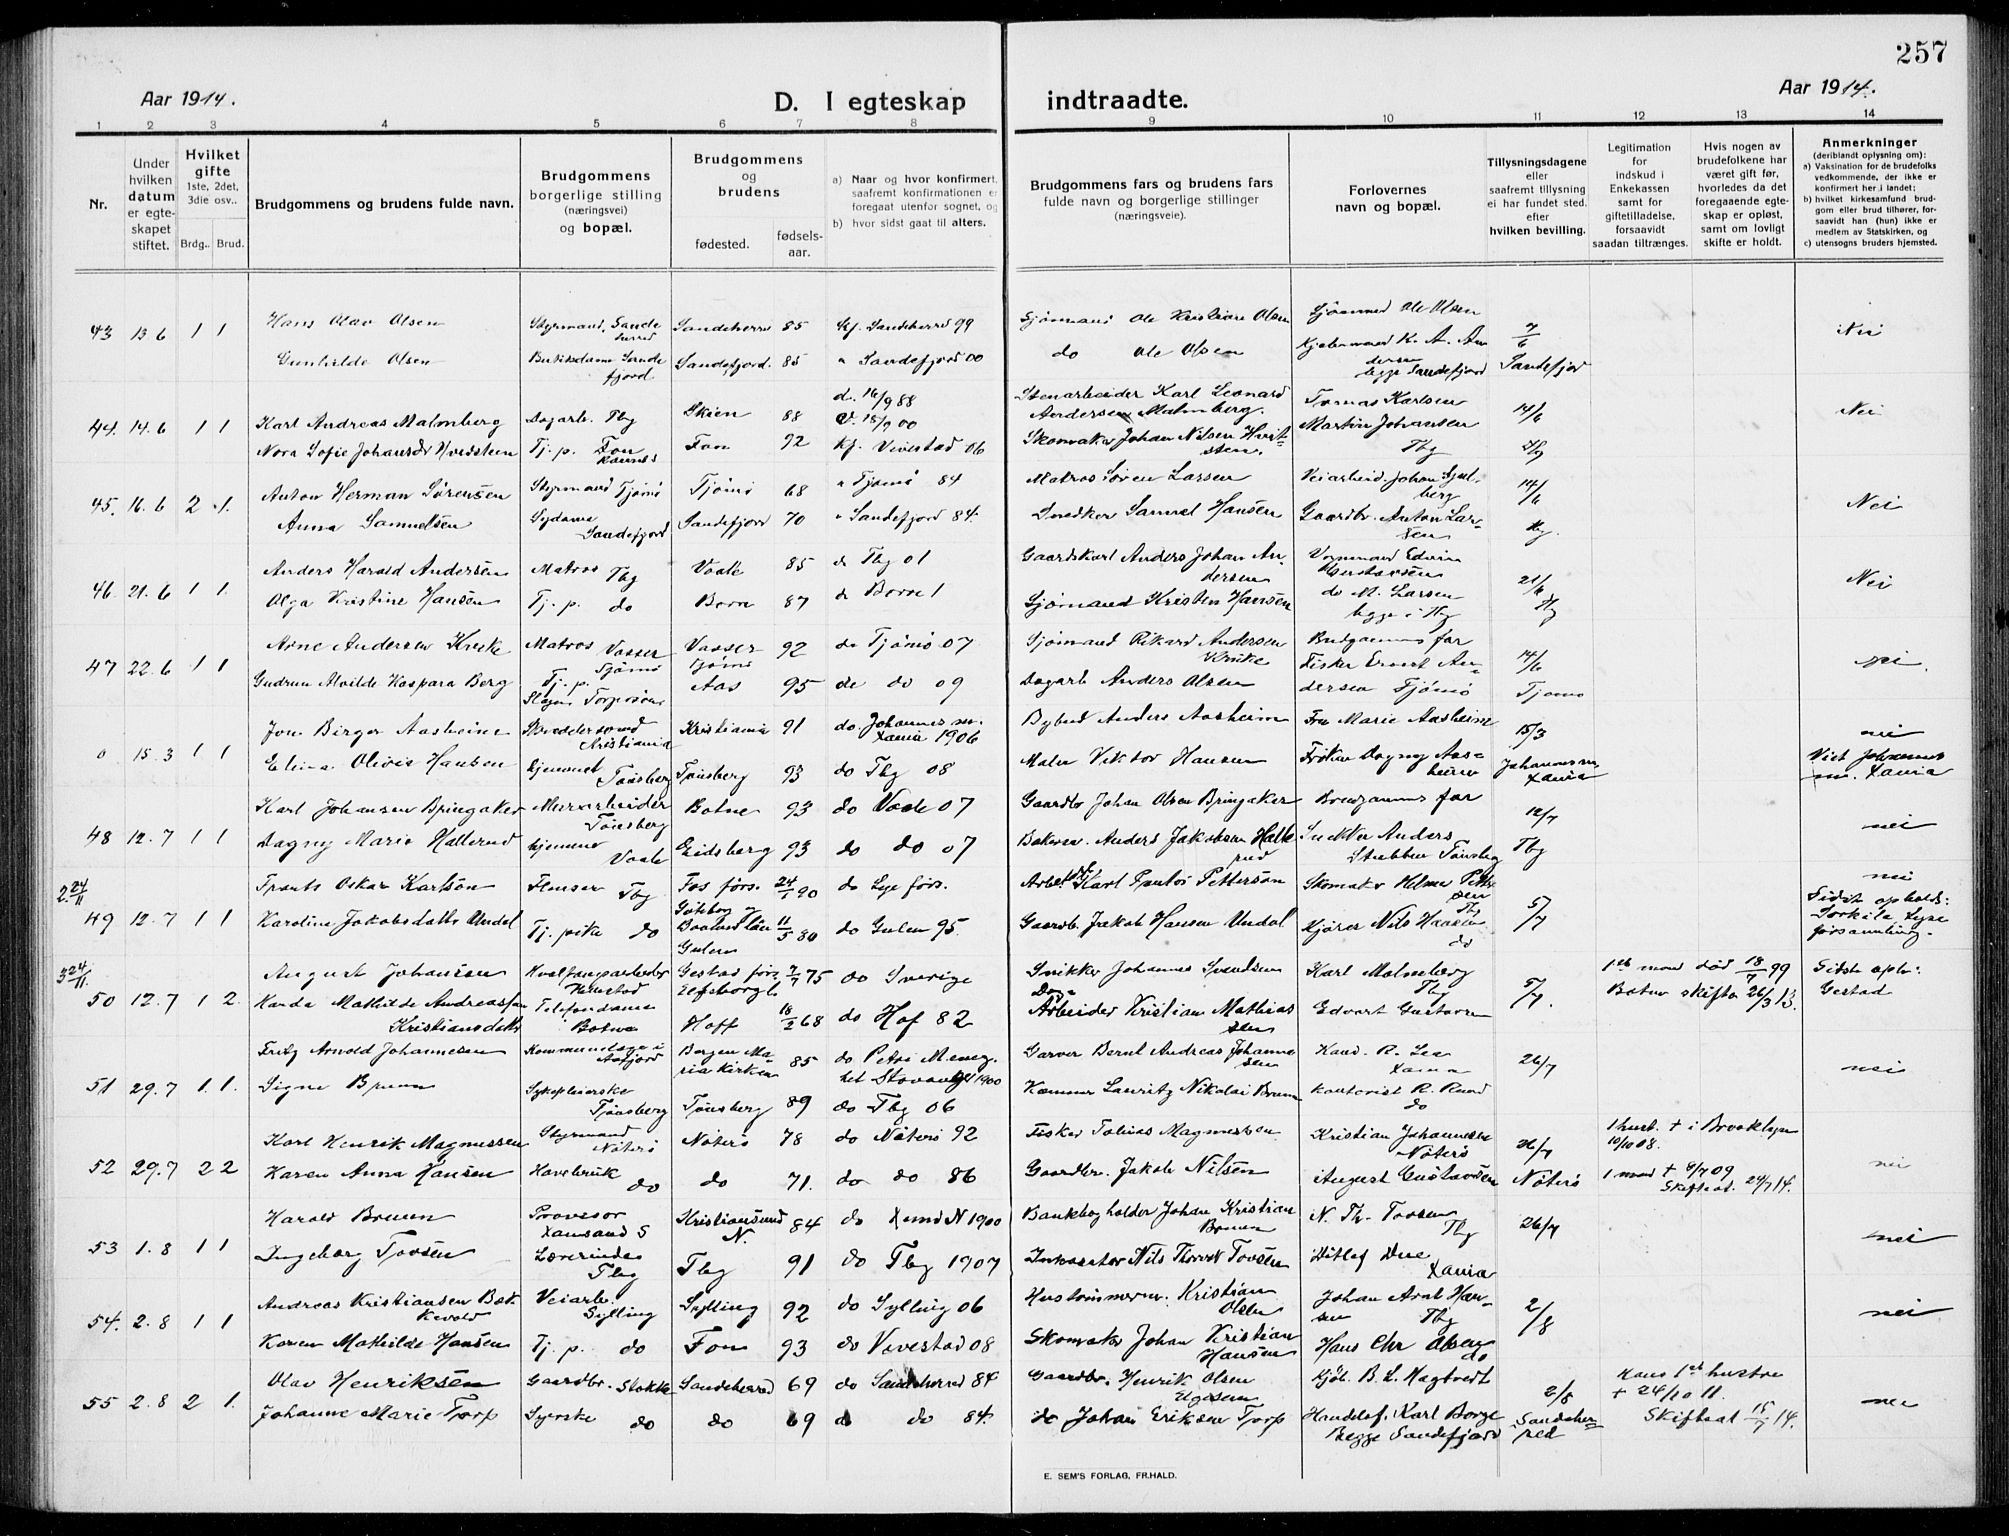 257
Aar 1914.
D. I egteskap
indtraadte.
Aar 1914.
1 2 3 4 5 6 7 8 9 10 11 12 13 14
Nr.
Under hvilken datum er egteskapet stiftet.
Hvilket gifte 1ste, 2det, 3die osv..
Brdg.. Brud.
Brudgommens og brudens fulde navn.
Brudgommens borgerlige stilling (næringsvei) og bopæl.
Brudgommens og brudens
fødested.
fødsels-aar.
a) Naar og hvor konfirmert, saafremt konfirmationen er foregaat utenfor sognet, og
b) hvor sidst gaat til alters.
Brudgommens fars og brudens fars fulde navn og borgerlige stillinger (næringsveie).
Forlovernes navn og bopæl.
Tillysningsdagene eller saafremt tillysning ei har fundet sted. efter hvilken bevilling.
Legitimation for indskud i Enkekassen samt for giftetilladelse, forsaavidt saadan tiltrænges.
Hvis nogen av brudefolkene har været gift før, hvorledes da det foregaaende egteskap er opløst, samt om lovligt skifte er holdt.
Anmerkninger (deriblandt oplysning om): a) Vaksination for de brudefolks vedkommende, der ikke er konfirmert her i landet; b) hvilket kirkesamfund brudgom eller brud tilhører, forsaavidt han (hun) ikke er medlem av Statskirken, og c) utensogns bruders hjemsted.
43 13 6 1 1 Hans Olav Olsen Styrmand, Sandeherred Sandeherred 85 Kf. Sandeherred 99 Sjömand Ole Kristian Olsen Sjömand Ole Olsen 7/6 Nei
Gunhilde Olsen Butiksdame Sandefjord Sandefjord 85 " Sandefjord 00 do Ole Olsen Kjöbmand K. A. Andersen begge Sandefjord Sandefjor
44. 14.6 1 1 Karl Andreas Malmberg Dagarb. Tbg Skien 88 d. 16/9 88 V. 15/9 00 Stenarbeider Karl Leonard Andersen Malmberg. Tomas Karlsen 14/6 Nei
Nora Sofie Johansdr Hvidsteen Tj. p. Fon Ramnes Fon 92 Kf. Vivestad 06 Skomaker Johan Nilsen Hvitsteen Martin Johansen Tbg
45. 16.6 2 1. Anton Herman Sörensen Styrmand Tjömö Tjömö 68 " Tjömö 84 Matros Sören Larsen Veiarbeid. Johan 14/6 Nei
Anna Samuelsen Sydame Sandefjord Sandefjord 70 " Sandefjord 84. Snedker Samuel Hansen Gaardbr. Anton Larsen Tbg.
46. 21.6 1 1. Anders Harald Andersen Matros Tbg Vaale 85 do Tbg 01 Gaardskarl Anders Johan Andersen Vognmand Edvin Gustavsen 21/6 Nei
Olga Kristine Hansen Tj. p. do Borre 87 do Borre 1 Sjömand Kristen Hansen do M. Larsen begge i Tbg Tbg
47 22.6 1 1 Arne Andersen Kruke Matros Vasser Tjömö Vasser Tjömö 92 do Tjömö 07 Sjömand Rikard Andersen Kruke Brudgommens far 14/6 nei.
Gudrun Alvilde Kaspara Berg Tj. p. Slagen Aas 95 do do 09 Dagarb Anders Olsen Fisker Ernst Andersen Tjömö Tjømø
0 15.3 1 1 Jon Birger Aasheim Skræddersvend Kristiania Kristiania 91 do Johannes m. Xania 1906 Bybud Anders Aasheim Fru Marie Aasheim 15/3 nei
Elina Olivia Hansen hjemmet Tönsberg Tönsberg 93 do Tbg 08 Maler Viktor Hansen Fröken Dagny Aasheim Johannes m. Xania Viet Johannes m. Xania
48 12.7 1 1 Karl Johansen Bringaker Murarbeider Tönsberg Botne 93 do Vaale 07 Gaardbr Johan Olsen Bringaker Brudgommens far 12/7 nei
Dagny Marie Hallerud hjemme Vaale Eidsberg 93 do do 07 Anders Jakobsen Hallerud Snekker Anders Stubben Tönsberg Tbg
2. 24/11 49 12.7 1 1 Frants Oskar Karlsön Flenser Tbg Fos förs. Göteborg og Bohuslän 24/1 90 do Lyse förs. Arbeid Karl Frantos Pettersön Skomaker Helmer Pettersen Tbg 5/7 nei
Karoline Jakobsdatter Undal Tj. pike do Gulen 11/5 80 do Gulen 95. Gaardbr. Jakob Hansen Undal Kjörer Nils Hansen do Sidste opholds: Lyse församling.
3 24/11. 50 12.7 1 2. August Johansen Hvalfangarbeider Gestad förs. Elfsborgs l. 7/7 75 do Sverige Snikker Johannes Svendsen Karl Malmberg Tbg 5/7. 1ste mand död 18/7 99 Sidste oph: Gestad
Karda Mathilde Andreassen Kristiansdatter Telefondame Botne Hoff 18/2 68 do Hof 82 Dag- Arbeider Kristian Mathiassen Edvart Gustavsen Botne skifte 26/3 13.
51 29.7 1. 1. Fritz Arnold Johannesen Kommunelæge i Aafjord Bergen Maria Kirken 85 do Petri Menighet Stavanger 1900 Garver Bernt Andreas Johannesen Kand. R. Lea Xania 26/7 nei
Signe Bruun Sykepleierske Tönsberg Tönsberg 89 do Tbg 06 Kæmner Lauritz Nikolai Bruun kontorist R. Ruud do
52 29.7 2 2 Karl Henrik Magnussen Styrmand Nöterö Nöterö 78 do Nöterö 92 Fisker Tobias Magnussen Kristian Johannesen Nöterö 26/7 1 hust. + i Brooklyn 10/10 08. nei
Karen Anna Hansen Havebruk do do 71. do do 86 Gaardbr. Jakob Nilsen August Gustavsen Nöterö 1 mand + 8/7 09 Skifteat. 24/7 14.
53 1.8 1 1 Harald Bruun Provisor Xansand S Kristiansund N. 84 do Xsund N 1900 Bankbogholder Johan Kristian Bruun N. Th. Tovsen Tbg 26/7 nei
Ingeborg Tovsen Lærerinde Tbg Tbg 91 do Tbg 1907 Inkassator Nils Thorvk Tovsen Ditlef Due Xania
54. 2.8 1 1 Andreas Kristiansen Bækkevold Veiarb. Sylling Sylling 92 do Sylling 06 Hustömmerm. Kristian Olsen Johan Arnt Hansen Tbg 2/8 nei
Karen Mathilde Hansen Tj. p. do Fon 93 do Vivestad 08 Skomaker Johan Kristian Hansen Hans Chr Olsen do
55 2.8 2 1. Olav Henriksen Gaardbr. Stokke Sandeherred 69 do Sandeherred 84 Gaardbr. Henrik Olsen Kjöb. B. L. Hagtvedt 2/8 Hans 1ste hustru + 24/10 11. nei
Johanne Marie Torp Syerske do do 69 do do 84. do Johan Eriksen Torp Handelsf. Karl Borge Begge Sandefjord Sandeherred Skifteat 15/7 14.
E. SEM'S FORLAG, FR.HALD.